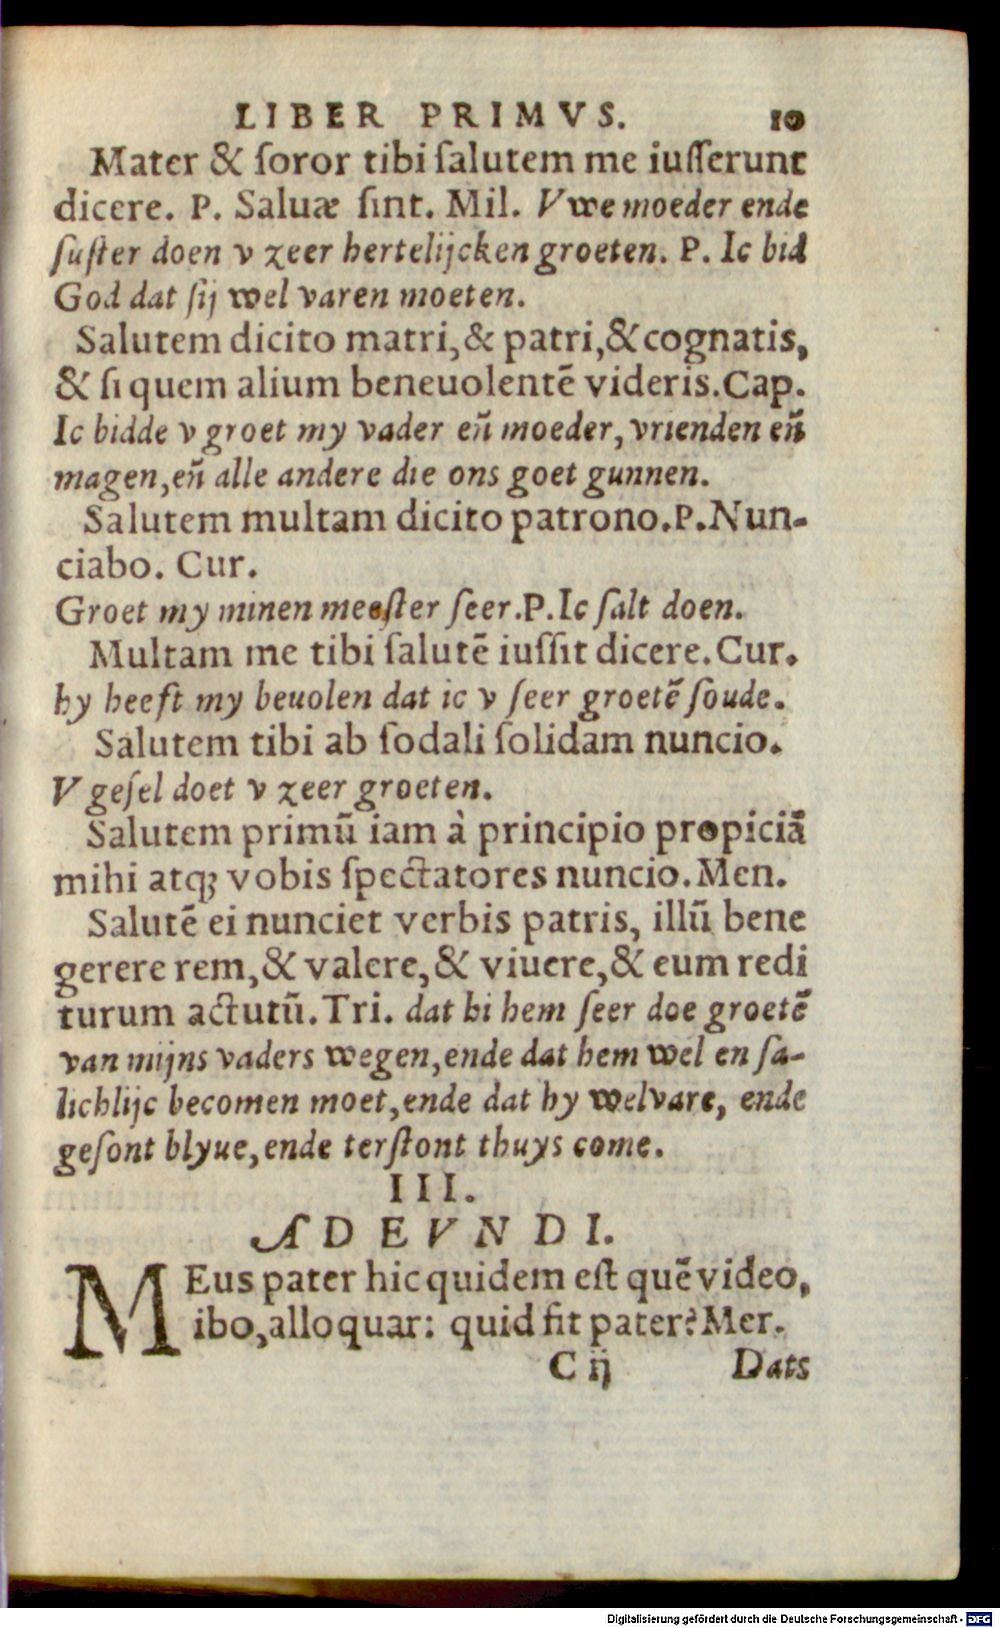 LIBER PRIMVS. 10
Mater & ſoror tibi ſalutem me iuſſerunt
dicere. P. Saluæ ſint. Mil. Vwe moeder ende
ſuſter doen v zeer hertelijcken groeten. P. Ic bid
God dat ſij wel varen moeten.
Salutem dicito matri,& patri,& cognatis,
& ſi quem alium beneuolentē videris.Cap.
Ic bidde v groet my vader en̄ moeder, vrienden en̄
magen,en̄ alle andere die ons goet gunnen.
Salutem multam dicito patrono.P.Nun-
ciabo. Cur.
Groet my minen meeſter ſeer.P.Ic ſalt doen.
Multam me tibi ſalutē iuſſit dicere.Cur.
hy heeft my beuolen dat ic v ſeer groetē ſoude.
Salutem tibi ab ſodali ſolidam nuncio.
V geſel doet v zeer groeten.
Salutem primū iam à principio propiciā
mihi atq; vobis ſpectatores nuncio.Men.
Salutē ei nunciet verbis patris, illū bene
gerere rem,& valere,& viuere,& eum redi
turum actutū.Tri. dat hi hem ſeer doe groetē
van mijns vaders wegen,ende dat hem wel en ſa-
lichlijc becomen moet,ende dat hy welvare, ende
geſont blyue,ende terſtont thuys come.
III.
ADEVNDI.
MEus pater hic quidem eſt quē video,
ibo,alloquar: quid fit pater? Mer.
C ij Dats
Digitalisierung gefördert durch die Deutsche Forschungsgemeinschaft - DFG